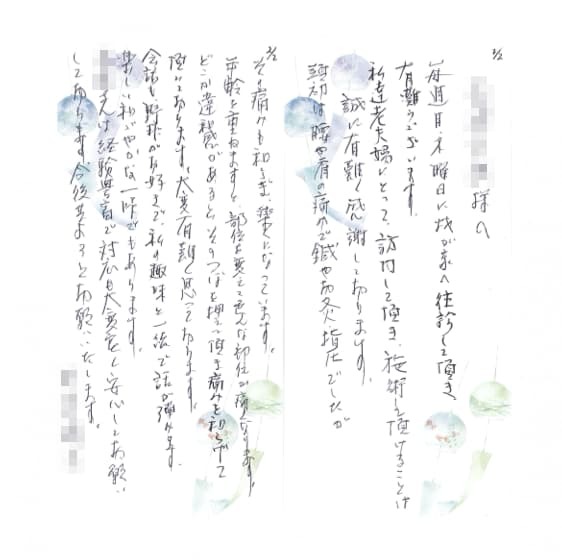 1/2
様へ
毎週月・木曜日に我が家へ往診して頂き、
有難うございます。
私達老夫婦にとって、訪問して頂き、施術を頂けることは
誠に有難く感謝しております。
最初は腰や肩の痛みで鍼やお灸、指圧でしたが
2/2
その痛みも和らぎ、楽になっています。
年齢を重ねますと、部位を変えて色んな部位が痛くなります。
どこか違和感があると、そのつぼを押えて頂き痛みを和らげて
頂いております。大変有難く思っております。
会話も野球がお好きで、私の趣味と一緒で話が弾みます。
楽しい和やかな一時でもあります。
さんは経験豊富で対応も大変良く安心してお願い
しております。今後共よろしくお願いいたします。